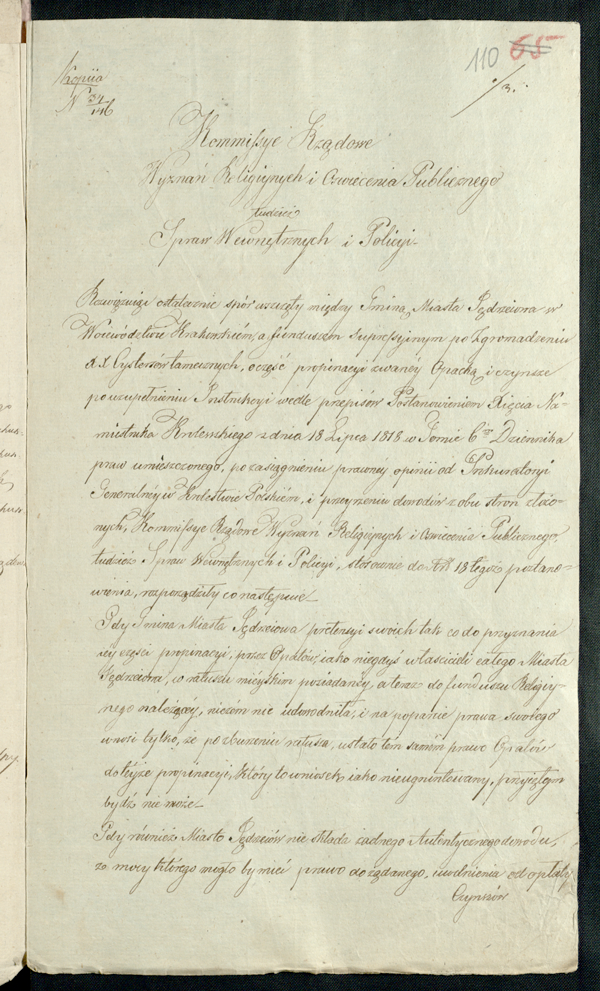 110 65
/3.
Kopiia
N 34/146
Kommissye Rządowe
Wyznań Religiynych i Oswiecenia Publicznego
tudzież
Spraw Wewnętrznych i Policyi.
Rozwiązuiąc ostatecznie spór wszczęty między Gminą Miasta Jędrzeiowa w
Woiewództwie Krakowskiém, a funduszem Suppressyinym po Zgromadzeniu
X.X. Cystersów tamecznych, o część propinacyi zwanéy Opacką i czynsze
po uzupełnieniu Instrukcyi wedle przepisów Postanowieniem Xięcia Na-
miestnika Królewskiego z dnia 18 Lipca 1818 w Tomie 6tm Dziennika
praw umieszczonego, po zasiągnieniu prawnéy opinii od Prokuratoryi
Generalnéy w Królestwie Polskiém, i przeyrzeniu dowodów z obu stron złożo-
nych, Kommissye Rządowe Wyznań Religiynych i Oswiecenia Publicznego,
tudzież Spraw Wewnętrznych i Policyi, stosownie do Art. 18 tegoż postano-
wienia, rozporządziły co następuie
Gdy Gmina Miasta Jędrzeiowa pretensyi swoich tak co do przyznania
iéy części propinacyi, przez Opatów, iako niegdyś właścicieli całego Miasta
Jędrzeiowa, w ratuszu mieyskim posiadanéy, a teraz do funduszu Religiy-
nego należącéy, niczém nie udowodniła, i na poparcie prawa swoiego
wnosi tylko, że po zburzeniu ratusza, ustało tém samém prawo Opatów
do téyże propinacyi, który to wniosek iako nieugruntowany, przyiętym
bydź nie może
Gdy również Miasto Jędrzeiów nie składa żadnego Autentycznego dowodu,
z mocy którego mogło by mieć prawo do żądanego uwolnienia od opłaty
Czynszów